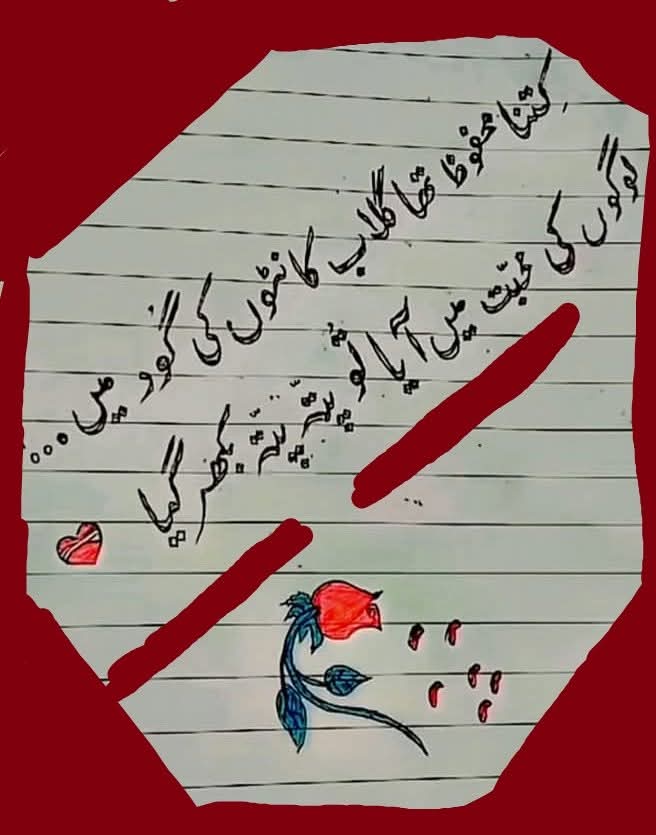 کتنا محفوظ تھا گلاب کانٹوں کی گود میں...
لوگوں کی محبّت میں آیا تو پتّہ پتّہ بکھر گیا